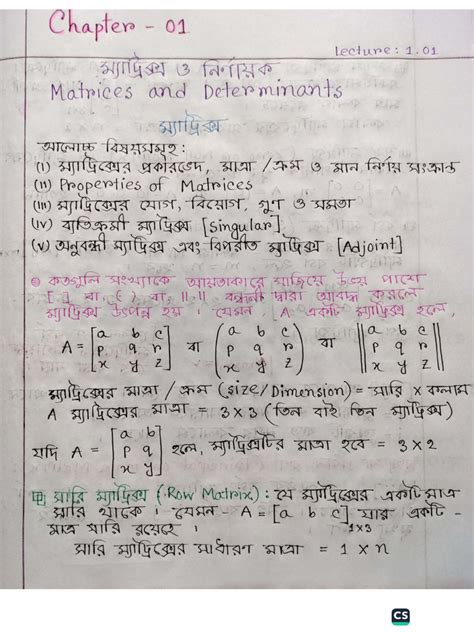 Chapter - 01
Lecture: 1.01
ম্যাট্রিক্স ও নির্ণায়ক
Matrices and Determinants
ম্যাট্রিক্স
আলোচ্য বিষয়সমূহ:
(i) ম্যাট্রিক্সের প্রকারভেদ, মাত্রা / ক্রম ও মান নির্ণয় সংক্রান্ত
(ii) Properties of Matrices
(iii) ম্যাট্রিক্সের যোগ, বিয়োগ, গুণ ও সমতা
(iv) ব্যতিক্রমী ম্যাট্রিক্স [Singular]
(v) অনুবন্ধী ম্যাট্রিক্স এবং বিপরীত ম্যাট্রিক্স [Adjoint]
কতগুলি সংখ্যাকে আয়তাকারে সাজিয়ে উভয় পাশে
[ ] বা ( ) বা || || বন্ধনী দ্বারা আবদ্ধ করলে
ম্যাট্রিক্স উৎপন্ন হয় । যেমন, A একটি ম্যাট্রিক্স হলে,
A = [a b c বা (a b c বা ||a b c
p q r] বা p q r) বা p q r||
x y z x y z x y z
ম্যাট্রিক্সের মাত্রা / ক্রম (size/Dimension) = সারি x কলাম
A ম্যাট্রিক্সের মাত্রা = 3x3 (তিন বাই তিন ম্যাট্রিক্স)
যদি A = [a b
p q
x y] হলে, ম্যাট্রিক্সটির মাত্রা হবে = 3x2
সারি ম্যাট্রিক্স (Row Matrix): যে ম্যাট্রিক্সের একটি মাত্র
সারি থাকে । যেমন - A = [a b c] যার একটি -
1x3
মাত্র সারি রয়েছে ।
সারি ম্যাট্রিক্সের সাধারণ মাত্রা = 1 x n
CS